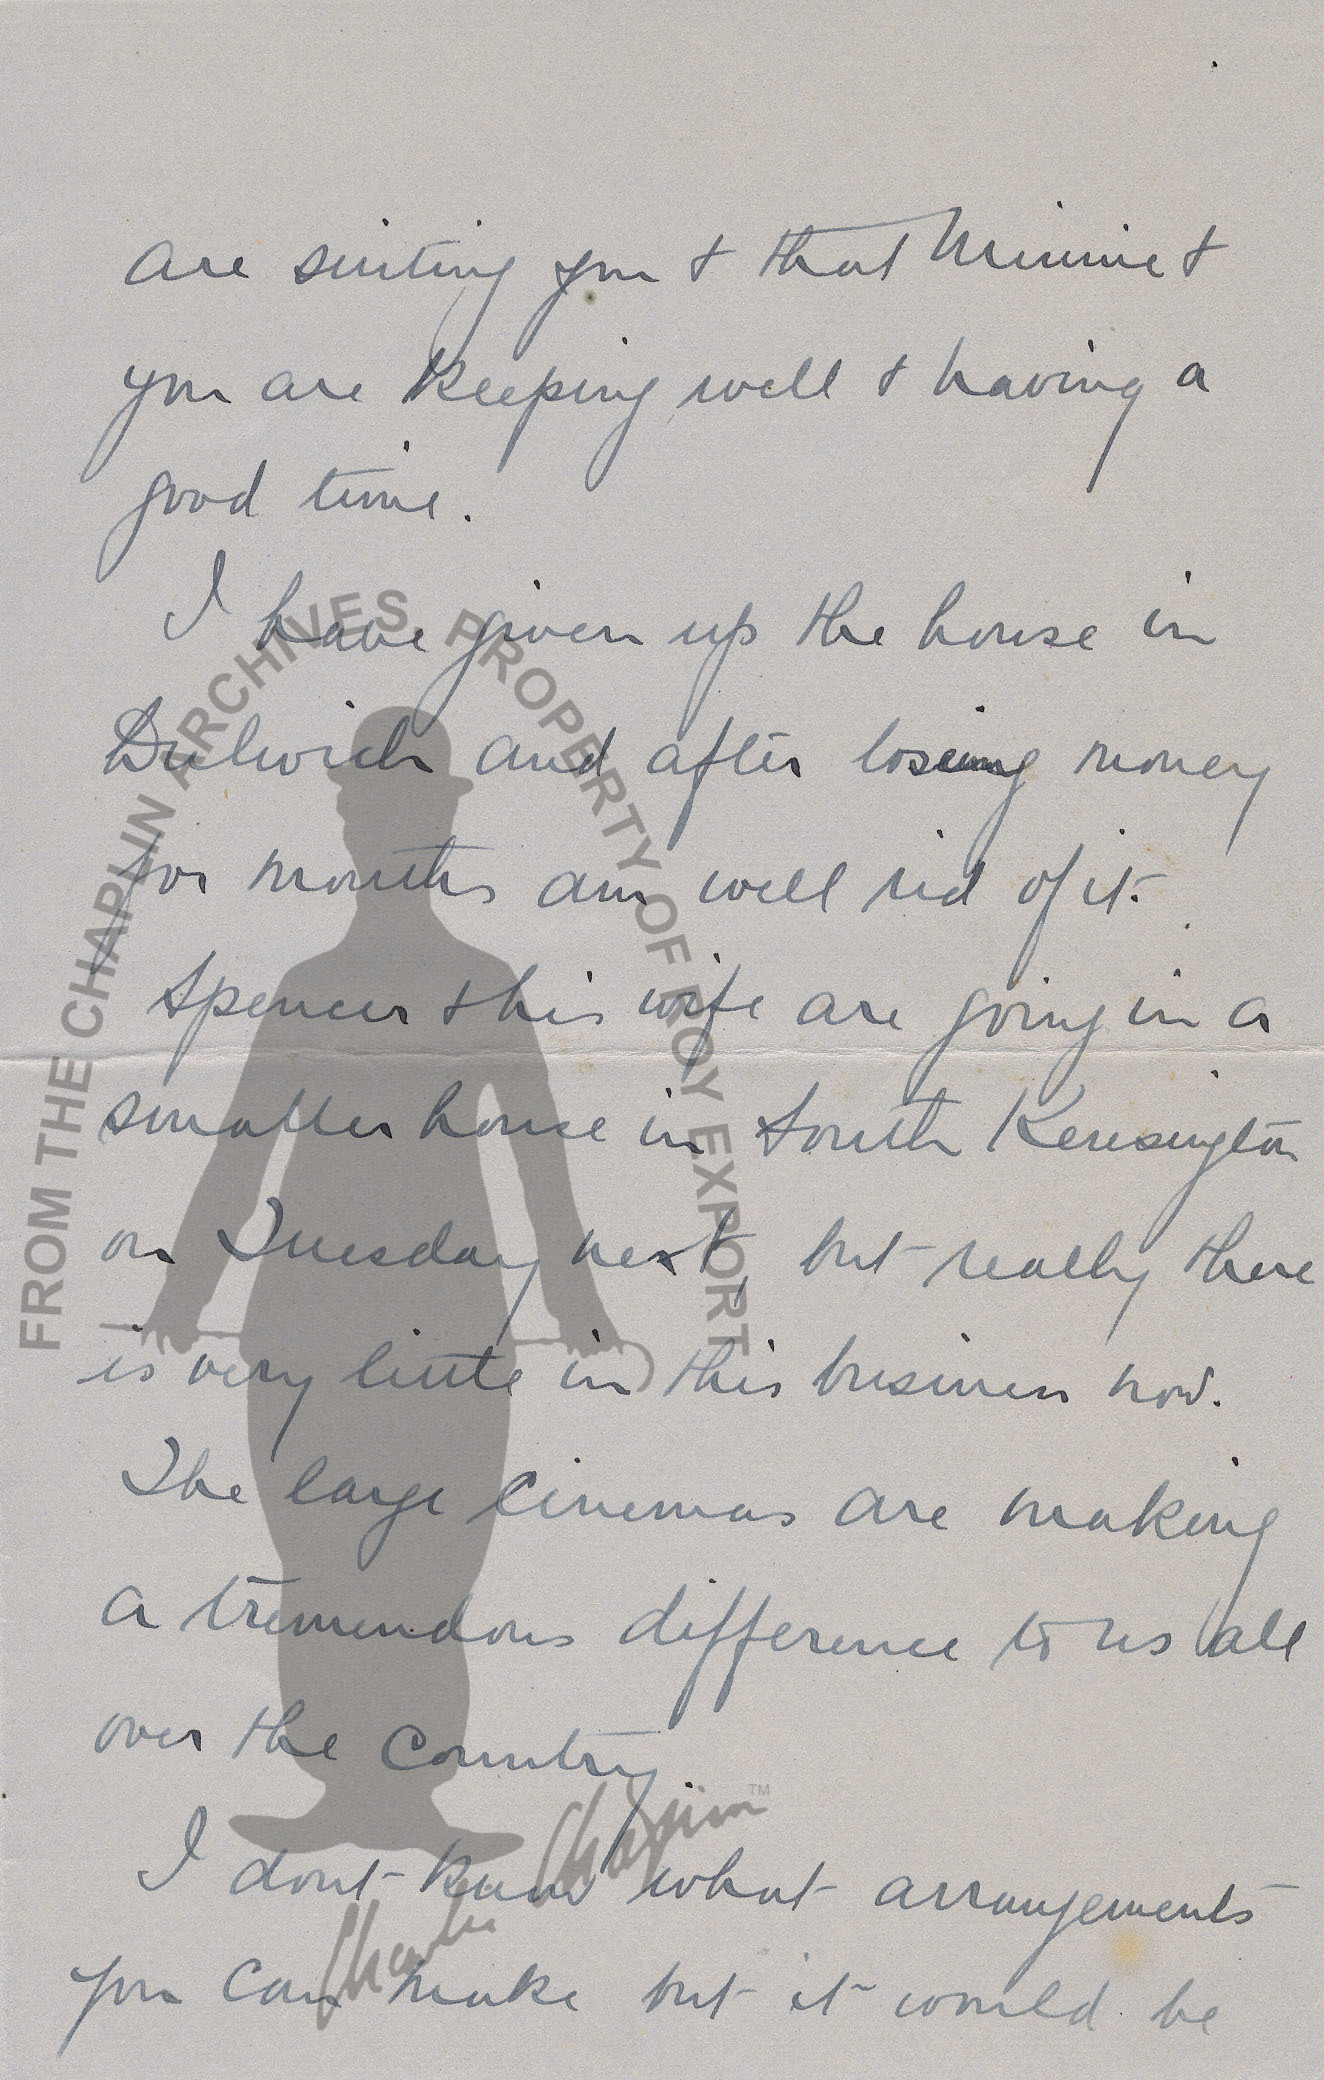 are suiting you & that Minnie &
you are keeping well & having a
good time.
I have given up the house in
Dulwich and after loseing money
for months am well rid of it.
Spencer & his wife are going in a
smaller house in South Kensington
on Tuesday next, but really there
is very little in this business now.
The large Cinemas are making
a tremendous difference to us all
over the Country.
I dont know what arrangements
you can make but it would be
FROM THE CHAPLIN ARCHIVES, PROPERTY OF ROY EXPORT
Charlie Chaplin™